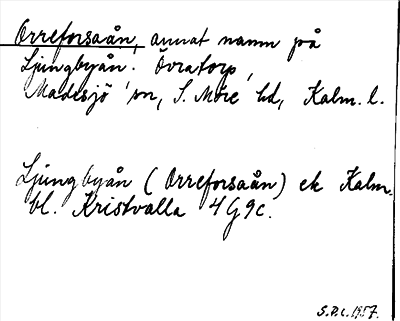 Orreforsaån, annat namn på
Ljungbyån. Övratorp,
Madesjö sn, S. Möre hd, Kalm. l.
Ljungbyån (Orreforsaån) ek Kalm.
bl. Kristvalla 4G9c.
S.D.C. 1957.